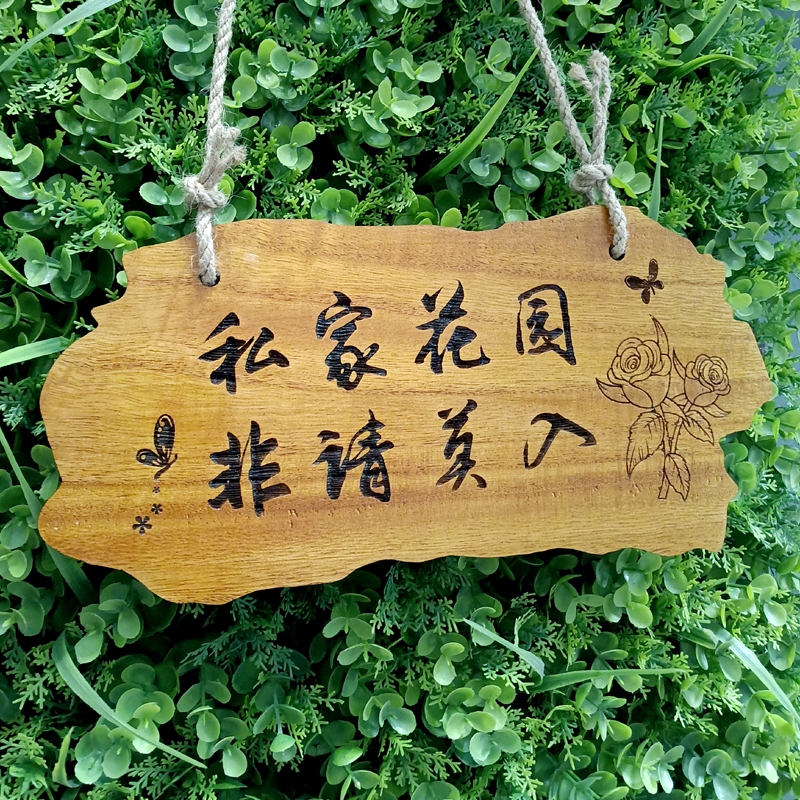 私家花园
非请莫入